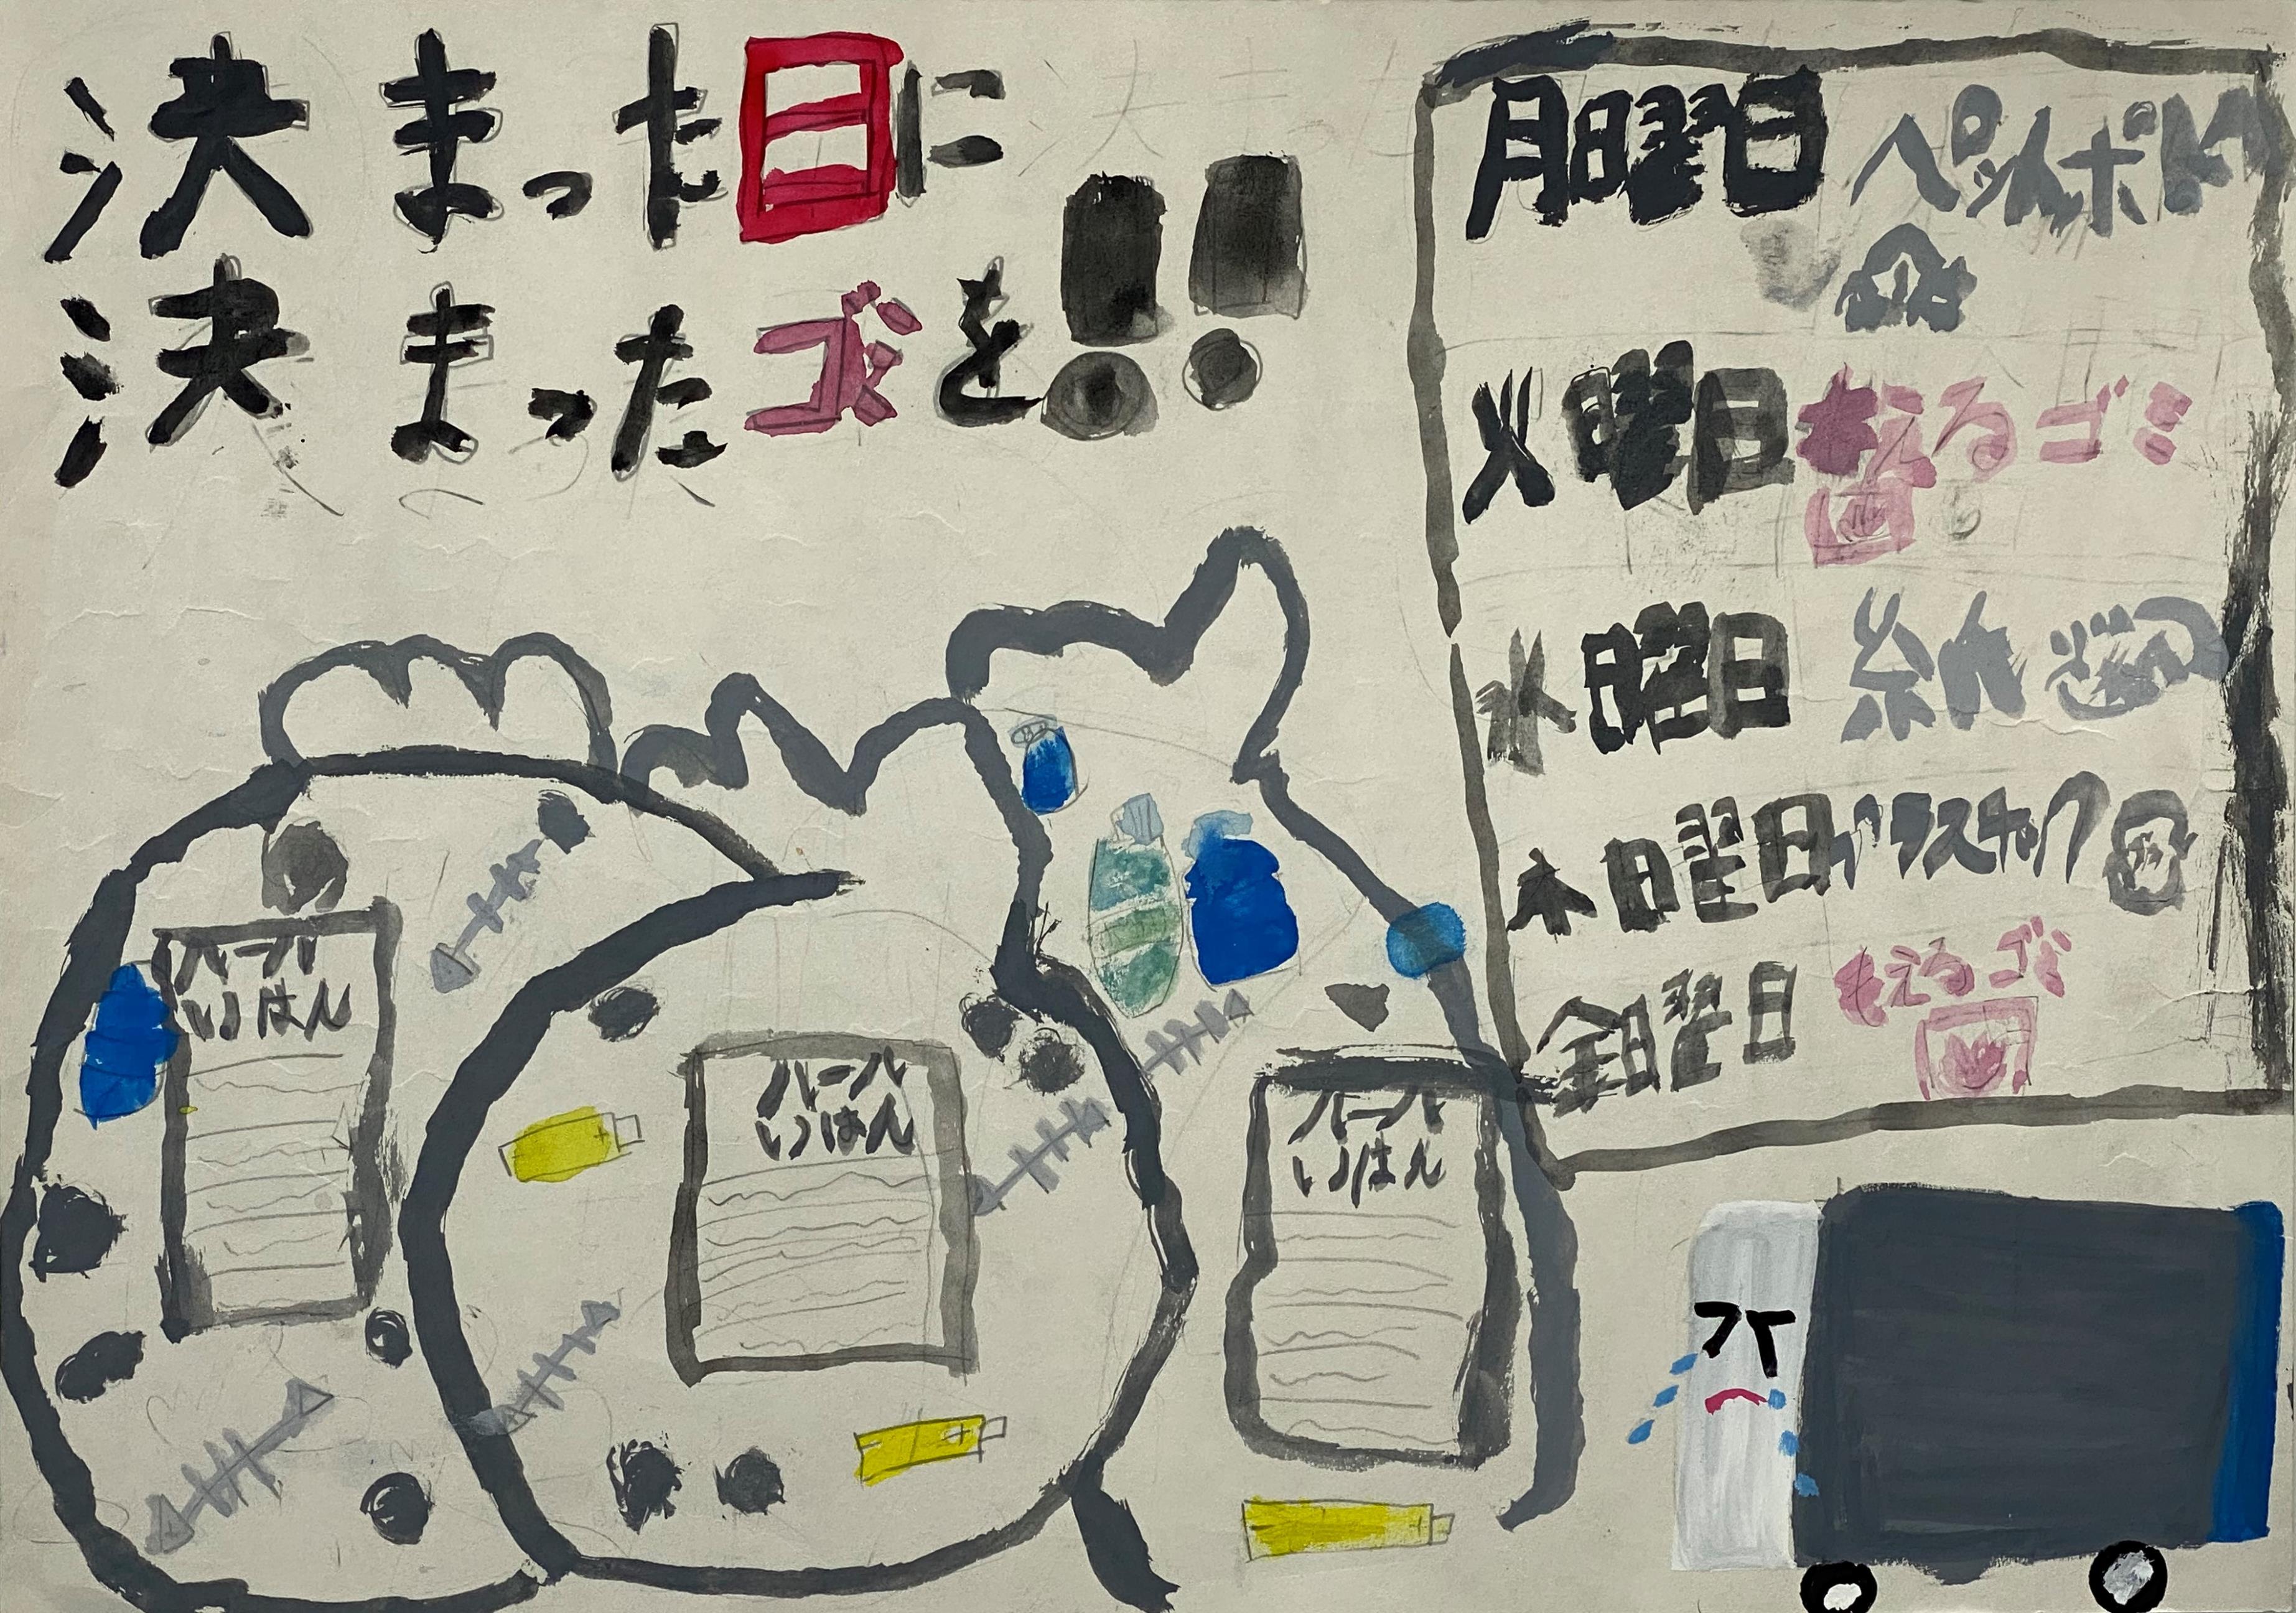 決まった日に
決まったゴミを!!
月曜日 ペットボトル
火曜日 もえるゴミ
水曜日
木曜日 プラスチック
金曜日 もえるゴミ
ルール
いはん
ルール
いはん
ルール
いはん